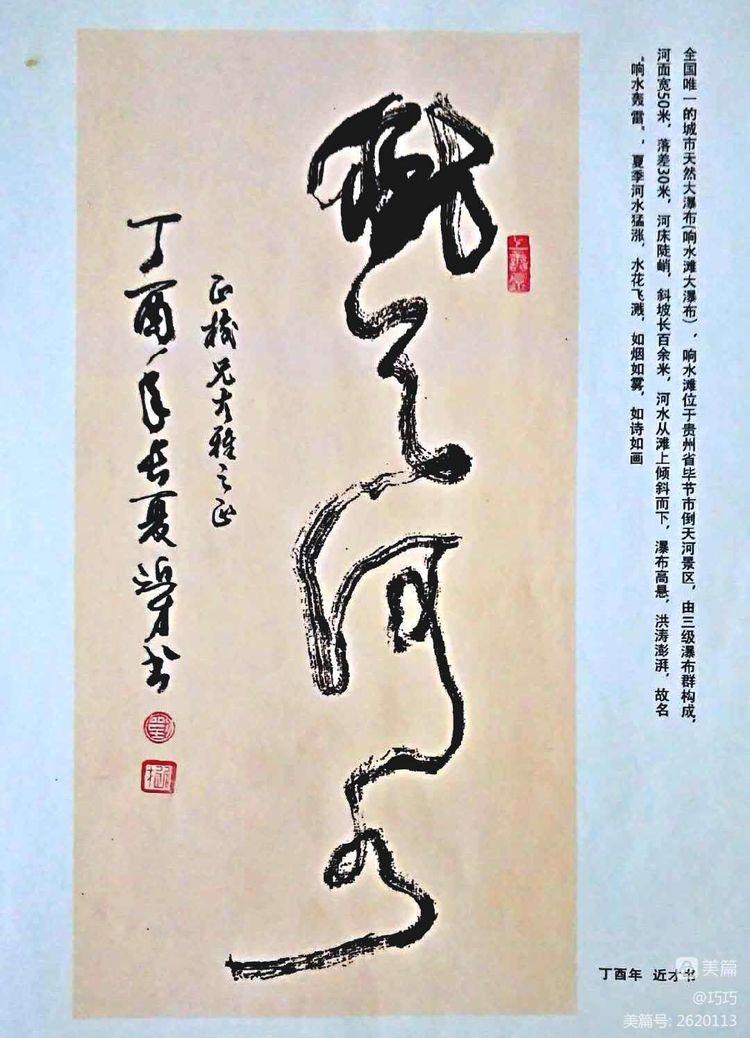 全国唯一的城市天然大瀑布(响水滩大瀑布)，响水滩位于贵州省毕节市倒天河景区，由三级瀑布群构成，
河面宽50米，落差30米，河床陡峭，斜坡长百余米，河水从滩上倾斜而下，瀑布高悬，洪涛澎湃，故名
“响水轰雷”，夏季河水猛涨，水花飞溅，如烟如雾，如诗如画
河
正 兄大雅之正
丁酉年长夏 书
丁酉年 近才书
美篇
@巧巧
美篇号: 2620113